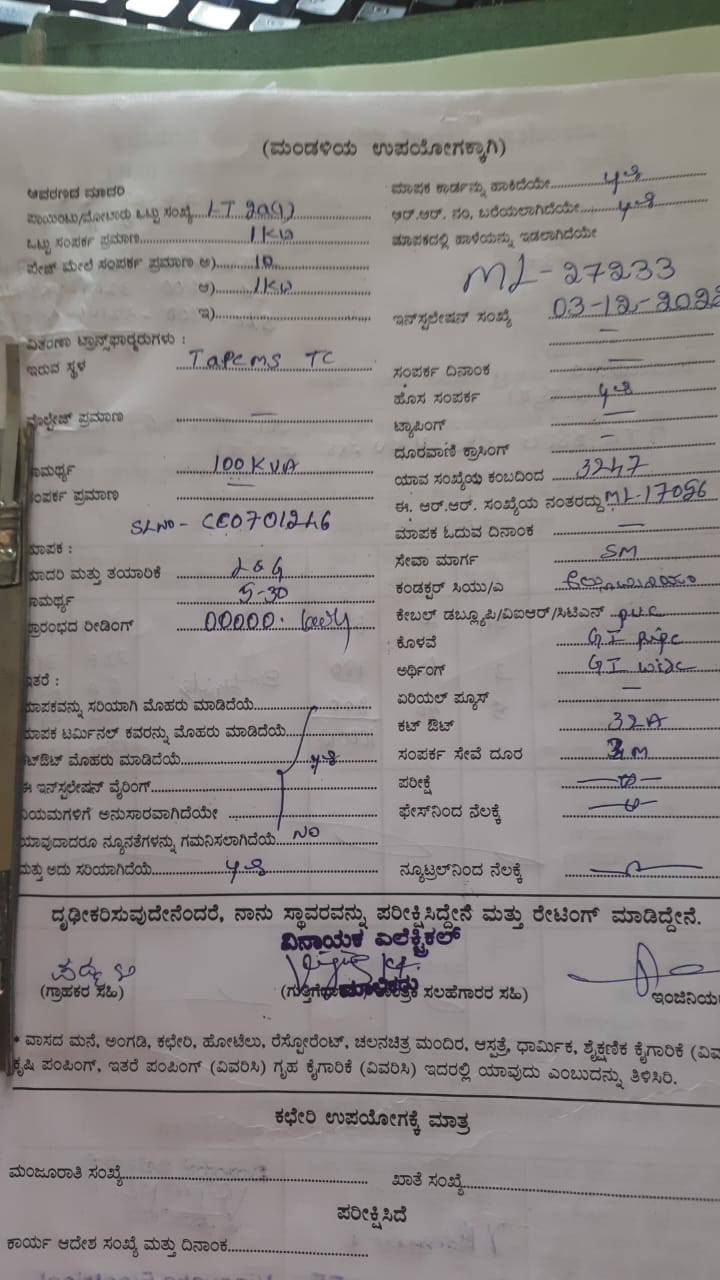 (ಮಂಡಳಿಯ ಉಪಯೋಗಕ್ಕಾಗಿ)
ಆವರಣದ ಮಾದರಿ
ಪಾಯಿಂಟು/ಮೋಟಾರು ಒಟ್ಟು ಸಂಖ್ಯೆ LT 2a(1)
ಒಟ್ಟು ಸಂಪರ್ಕ ಪ್ರಮಾಣ 1KW
ಪೇಜ್ ಮೇಲೆ ಸಂಪರ್ಕ ಪ್ರಮಾಣ ಅ)
ಆ) 1KW
ಇ)
ವಿತರಣಾ ಟ್ರಾನ್ಸ್‌ಫಾರ್‍ಮರುಗಳು :
ಇರುವ ಸ್ಥಳ Tapcms TC
ವೋಲ್ಟೇಜ್ ಪ್ರಮಾಣ —
ಾಮರ್ಥ್ಯ 100KVA
ಸಂಪರ್ಕ ಪ್ರಮಾಣ —
SLNO - CC0701246
ಮಾಪಕ :
ಮಾದರಿ ಮತ್ತು ತಯಾರಿಕೆ L&G
ಾಮರ್ಥ್ಯ 5-30
ಪ್ರಾರಂಭದ ರೀಡಿಂಗ್ 00000.
ಇತರೆ :
ಮಾಪಕವನ್ನು ಸರಿಯಾಗಿ ಮೊಹರು ಮಾಡಿದೆಯೆ
ಮಾಪಕ ಟರ್ಮಿನಲ್ ಕವರನ್ನು ಮೊಹರು ಮಾಡಿದೆಯೆ
ಟ್‌ಔಟ್ ಮೊಹರು ಮಾಡಿದೆಯೆ
ಈ ಇನ್‌ಸ್ಟಲೇಷನ್ ವೈರಿಂಗ್
ನಿಯಮಗಳಿಗೆ ಅನುಸಾರವಾಗಿದೆಯೇ
ಯಾವುದಾದರೂ ನ್ಯೂನತೆಗಳನ್ನು ಗಮನಿಸಲಾಗಿದೆಯೆ NO
ಮತ್ತು ಅದು ಸರಿಯಾಗಿದೆಯೆ
ಮಾಪಕ ಕಾರ್ಡನ್ನು ಹಾಕಿದೆಯೇ
ಆರ್.ಆರ್. ನಂ, ಬರೆಯಲಾಗಿದೆಯೇ
ಮಾಪಕದಲ್ಲಿ ಹಾಳೆಯನ್ನು ಇಡಲಾಗಿದೆಯೇ
ML-27233
ಇನ್‌ಸ್ಟಲೇಷನ್ ಸಂಖ್ಯೆ 03-12-202
—
ಸಂಪರ್ಕ ದಿನಾಂಕ —
ಹೊಸ ಸಂಪರ್ಕ
ಟ್ಯಾಪಿಂಗ್ —
ದೂರವಾಣಿ ಕ್ರಾಸಿಂಗ್ —
ಯಾವ ಸಂಖ್ಯೆಯ ಕಂಬದಿಂದ 3247
ಈ. ಆರ್.ಆರ್. ಸಂಖ್ಯೆಯ ನಂತರದ್ದು ML-17056
ಮಾಪಕ ಓದುವ ದಿನಾಂಕ —
ಸೇವಾ ಮಾರ್ಗ SM
ಕಂಡಕ್ಟರ್ ಸಿಯು/ಎ
ಕೇಬಲ್ ಡಬ್ಲ್ಯೂಪಿ/ವಿಐಆರ್/ಸಿಟಿಎನ್ p.v.c
ಕೊಳವೆ GI pipe
ಅರ್ಥಿಂಗ್ GI wire
ಏರಿಯಲ್ ಫ್ಯೂಸ್ —
ಕಟ್ ಔಟ್ 32A
ಸಂಪರ್ಕ ಸೇವೆ ದೂರ M
ಪರೀಕ್ಷೆ
ಫೇಸ್‌ನಿಂದ ನೆಲಕ್ಕೆ
ನ್ಯೂಟ್ರಲ್‌ನಿಂದ ನೆಲಕ್ಕೆ
ದೃಢೀಕರಿಸುವುದೇನೆಂದರೆ, ನಾನು ಸ್ಥಾವರವನ್ನು ಪರೀಕ್ಷಿಸಿದ್ದೇನೆ ಮತ್ತು ರೇಟಿಂಗ್ ಮಾಡಿದ್ದೇನೆ.
ವಿನಾಯಕ ಎಲೆಕ್ಟ್ರಿಕಲ್
(ಗ್ರಾಹಕರ ಸಹಿ) ಸಲಹೆಗಾರರ ಸಹಿ) ಇಂಜಿನಿಯ
* ವಾಸದ ಮನೆ, ಅಂಗಡಿ, ಕಛೇರಿ, ಹೋಟೆಲು, ರೆಸ್ಟೋರೆಂಟ್, ಚಲನಚಿತ್ರ ಮಂದಿರ, ಆಸ್ಪತ್ರೆ, ಧಾರ್ಮಿಕ, ಶೈಕ್ಷಣಿಕ ಕೈಗಾರಿಕೆ (ವಿವ
ಕೃಷಿ ಪಂಪಿಂಗ್, ಇತರೆ ಪಂಪಿಂಗ್ (ವಿವರಿಸಿ) ಗೃಹ ಕೈಗಾರಿಕೆ (ವಿವರಿಸಿ) ಇದರಲ್ಲಿ ಯಾವುದು ಎಂಬುದನ್ನು ತಿಳಿಸಿರಿ.
ಕಛೇರಿ ಉಪಯೋಗಕ್ಕೆ ಮಾತ್ರ
ಮಂಜೂರಾತಿ ಸಂಖ್ಯೆ ಖಾತೆ ಸಂಖ್ಯೆ
ಪರೀಕ್ಷಿಸಿದೆ
ಕಾರ್ಯ ಆದೇಶ ಸಂಖ್ಯೆ ಮತ್ತು ದಿನಾಂಕ